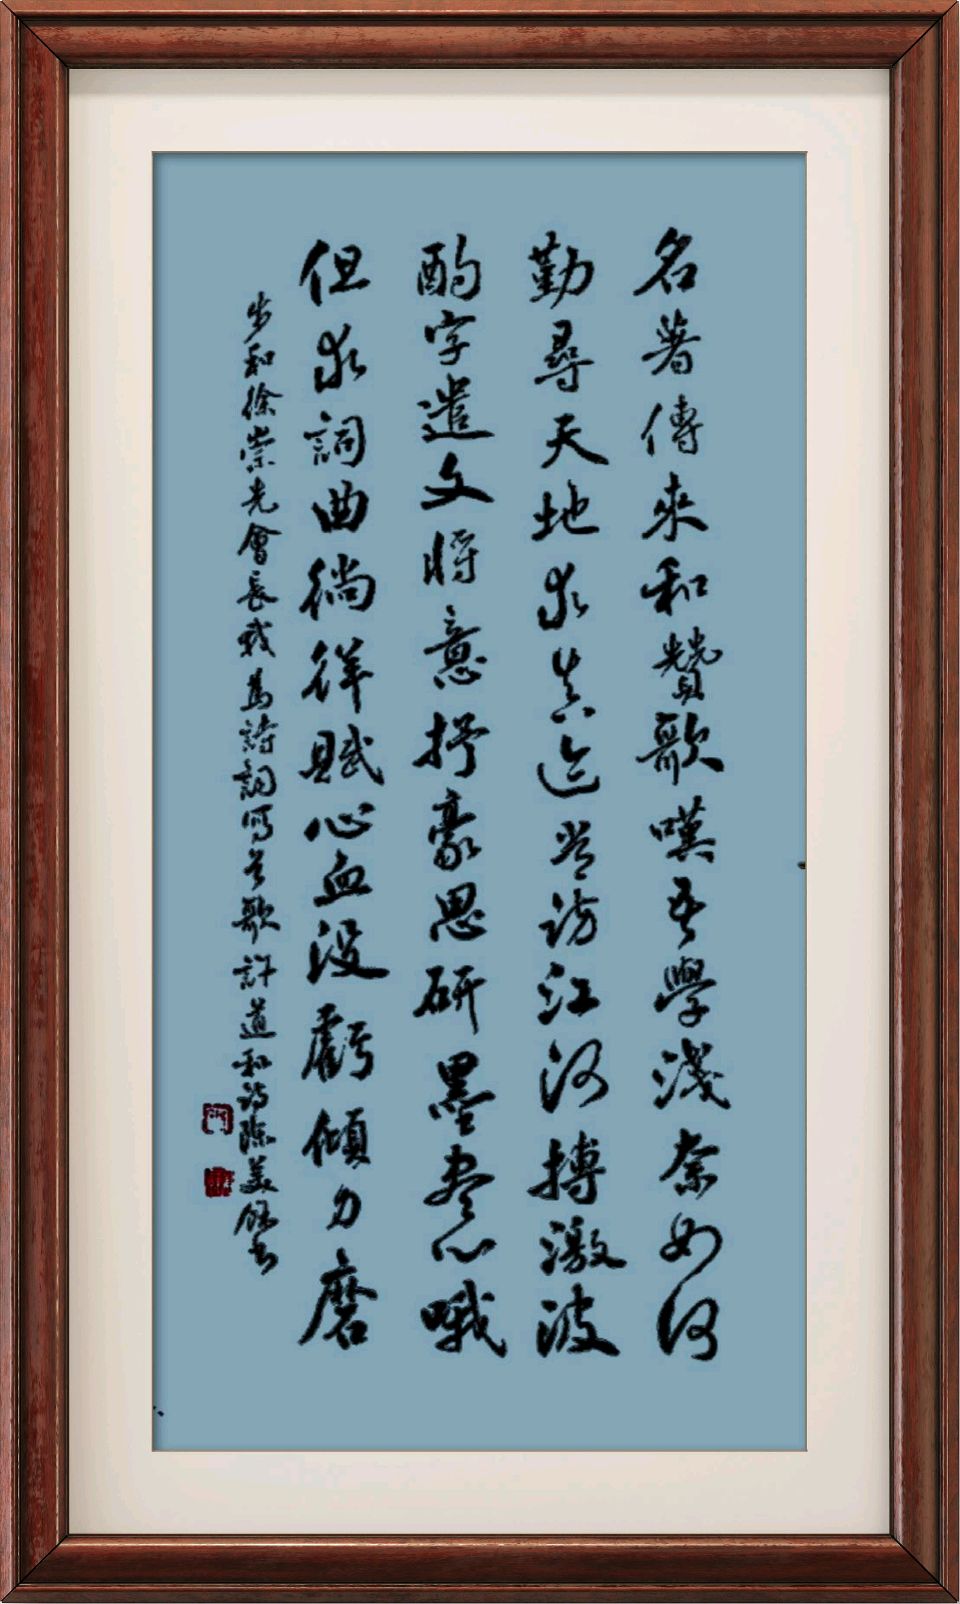 名著傳來和贊歌嘆吾學淺奈如何
勤尋天地求真迹常訪江河搏激波
酌字遣文將意抒豪思研墨盡心哦
但求詞曲徜徉賦心血沒虧傾力磨
步和徐崇光會長我為詩詞寫首歌 許道和詩陳美銘書